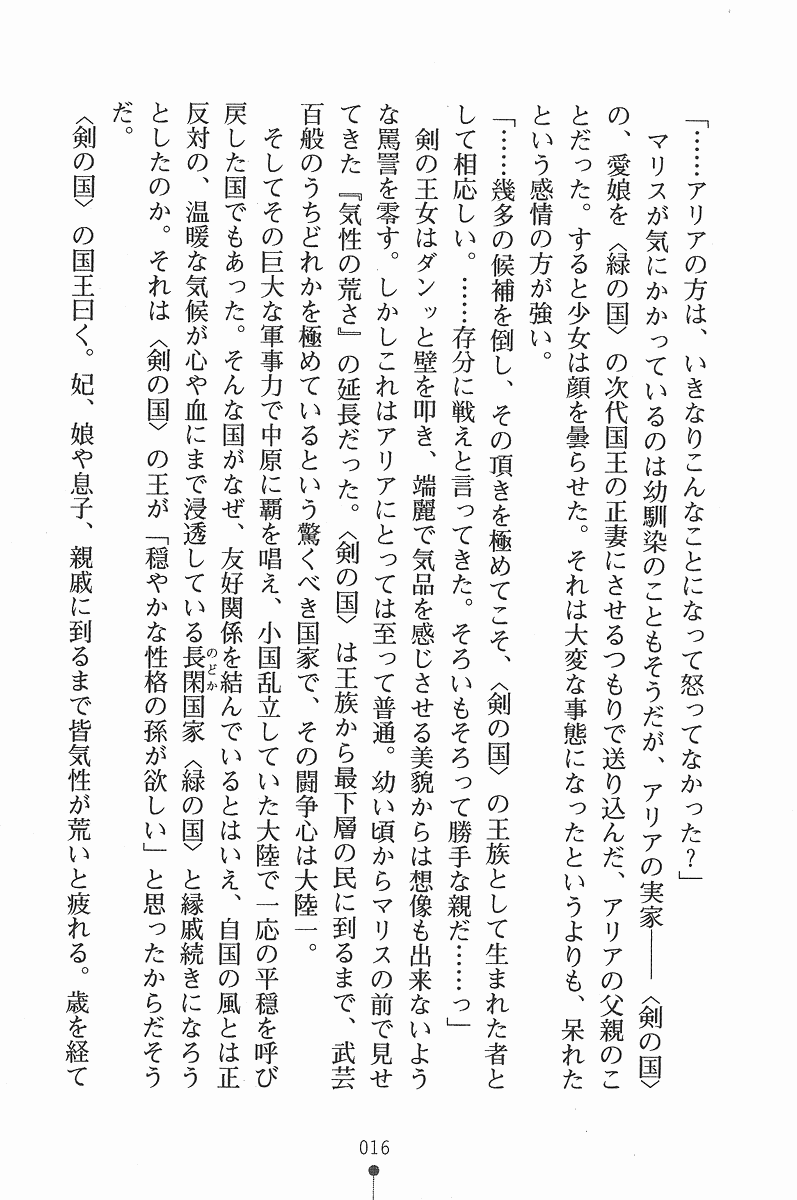 「……アリアの方は、いきなりこんなことになって怒ってなかった？」
　マリスが気にかかっているのは幼馴染のこともそうだが、アリアの実家――〈剣の国〉
の、愛娘を〈緑の国〉の次代国王の正妻にさせるつもりで送り込んだ、アリアの父親のこ
とだった。すると少女は顔を曇らせた。それは大変な事態になったというよりも、呆れた
という感情の方が強い。
「……幾多の候補を倒し、その頂きを極めてこそ、〈剣の国〉の王族として生まれた者と
して相応しい。……存分に戦えと言ってきた。そろいもそろって勝手な親だ……っ」
　剣の王女はダンッと壁を叩き、端麗で気品を感じさせる美貌からは想像も出来ないよう
な罵詈を零す。しかしこれはアリアにとっては至って普通。幼い頃からマリスの前で見せ
てきた『気性の荒さ』の延長だった。〈剣の国〉は王族から最下層の民に到るまで、武芸
百般のうちどれかを極めているという驚くべき国家で、その闘争心は大陸一。
　そしてその巨大な軍事力で中原に覇を唱え、小国乱立していた大陸で一応の平穏を呼び
戻した国でもあった。そんな国がなぜ、友好関係を結んでいるとはいえ、自国の風とは正
反対の、温暖な気候が心や血にまで浸透している長閑国家〈緑の国〉と縁戚続きになろう
のどか
としたのか。それは〈剣の国〉の王が「穏やかな性格の孫が欲しい」と思ったからだそう
だ。
〈剣の国〉の国王曰く。妃、娘や息子、親戚に到るまで皆気性が荒いと疲れる。歳を経て
016